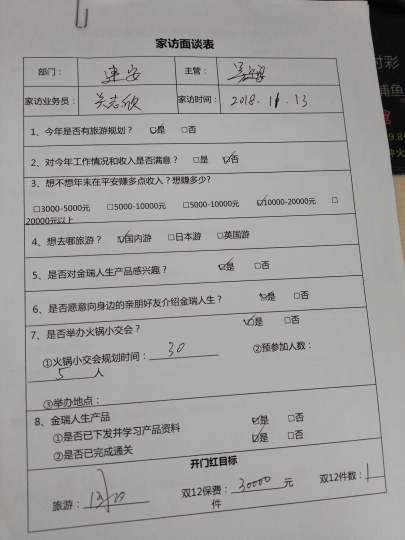 家访面谈表
部门: 东安 主管:
家访业务员: 关志欣 家访时间: 2018.11.13
1、今年是否有旅游规划? ☑是 □否
2、对今年工作情况和收入是否满意? □是 ☑否
3、想不想年末在平安赚多点收入?想赚多少?
□3000-5000元 □5000-10000元 □5000-10000元 ☑10000-20000元 □
20000元以上
4、想去哪旅游? ☑国内游 □日本游 □英国游
5、是否对金瑞人生产品感兴趣? ☑是 □否
6、是否愿意向身边的亲朋好友介绍金瑞人生? ☑是 □否
7、是否举办火锅小交会? ☑是 □否
①火锅小交会规划时间: 30 ②预参加人数:
5 人
③举办地点:
8、金瑞人生产品
①是否已下发并学习产品资料 ☑是 □否
②是否已完成通关 ☑是 □否
开门红目标
旅游: 双12保费: 30000 元 双12件数: 1
件